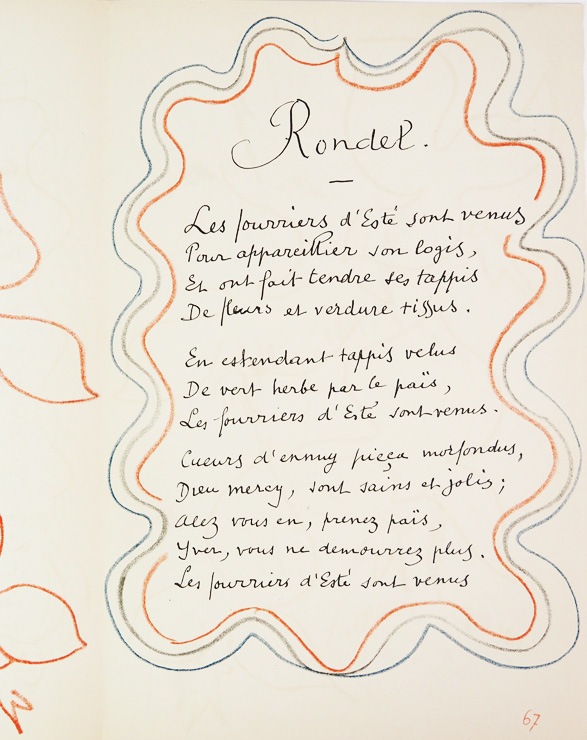 Rondel.
Les fourriers d'Esté sont venus
Pour appareillier son logis,
Et ont fait tendre ses tappis
De fleurs et verdure tissus.
En estendant tappis velus
De vert herbe par le païs,
Les fourriers d'Esté sont venus.
Cueurs d'ennuy pieça morfondus,
Dieu mercy, sont sains et jolis;
Alez vous en, prenez païs,
Yver, vous ne demourrez plus.
Les fourriers d'Esté sont venus
67